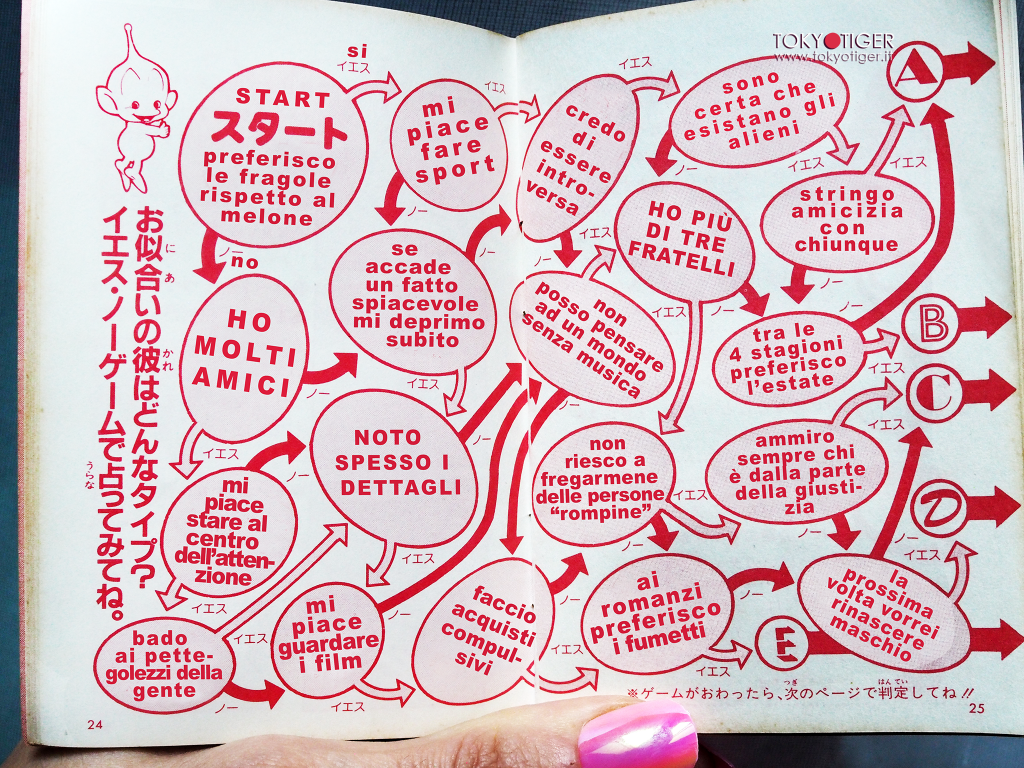 TOKYOTIGER
www.tokyotiger.it
お似合いの彼はどんなタイプ?
にあ
かれ
イエス・ノーゲームで占ってみてね。
うらな
START
スタート
preferisco
le fragole
rispetto al
melone
si
イエス
ノー
no
mi
piace
fare
sport
イエス
ノー
credo
di
essere
intro-
versa
イエス
ノー
sono
certa che
esistano gli
alieni
イエス
ノー
A
HO
MOLTI
AMICI
ノー
イエス
se
accade
un fatto
spiacevole
mi deprimo
subito
ノー
イエス
HO PIÙ
DI TRE
FRATELLI
ノー
イエス
stringo
amicizia
con
chiunque
イエス
ノー
non
posso pensare
ad un mondo
senza musica
イエス
ノー
tra le
4 stagioni
preferisco
l'estate
ノー
イエス
B
NOTO
SPESSO I
DETTAGLI
ノー
イエス
mi
piace
stare al
centro
dell'atten-
zione
ノー
イエス
non
riesco a
fregarmene
delle persone
"rompine"
イエス
ノー
ammiro
sempre chi
è dalla parte
della giusti-
zia
イエス
ノー
C
D
bado
ai pette-
golezzi della
gente
イエス
ノー
mi
piace
guardare
i film
ノー
イエス
faccio
acquisti
compul-
sivi
ノー
イエス
ai
romanzi
preferisco
i fumetti
ノー
イエス
E
la
prossima
volta vorrei
rinascere
maschio
ノー
イエス
※ゲームがおわったら、次のページで判定してね!!
つぎ
はんてい
24
25